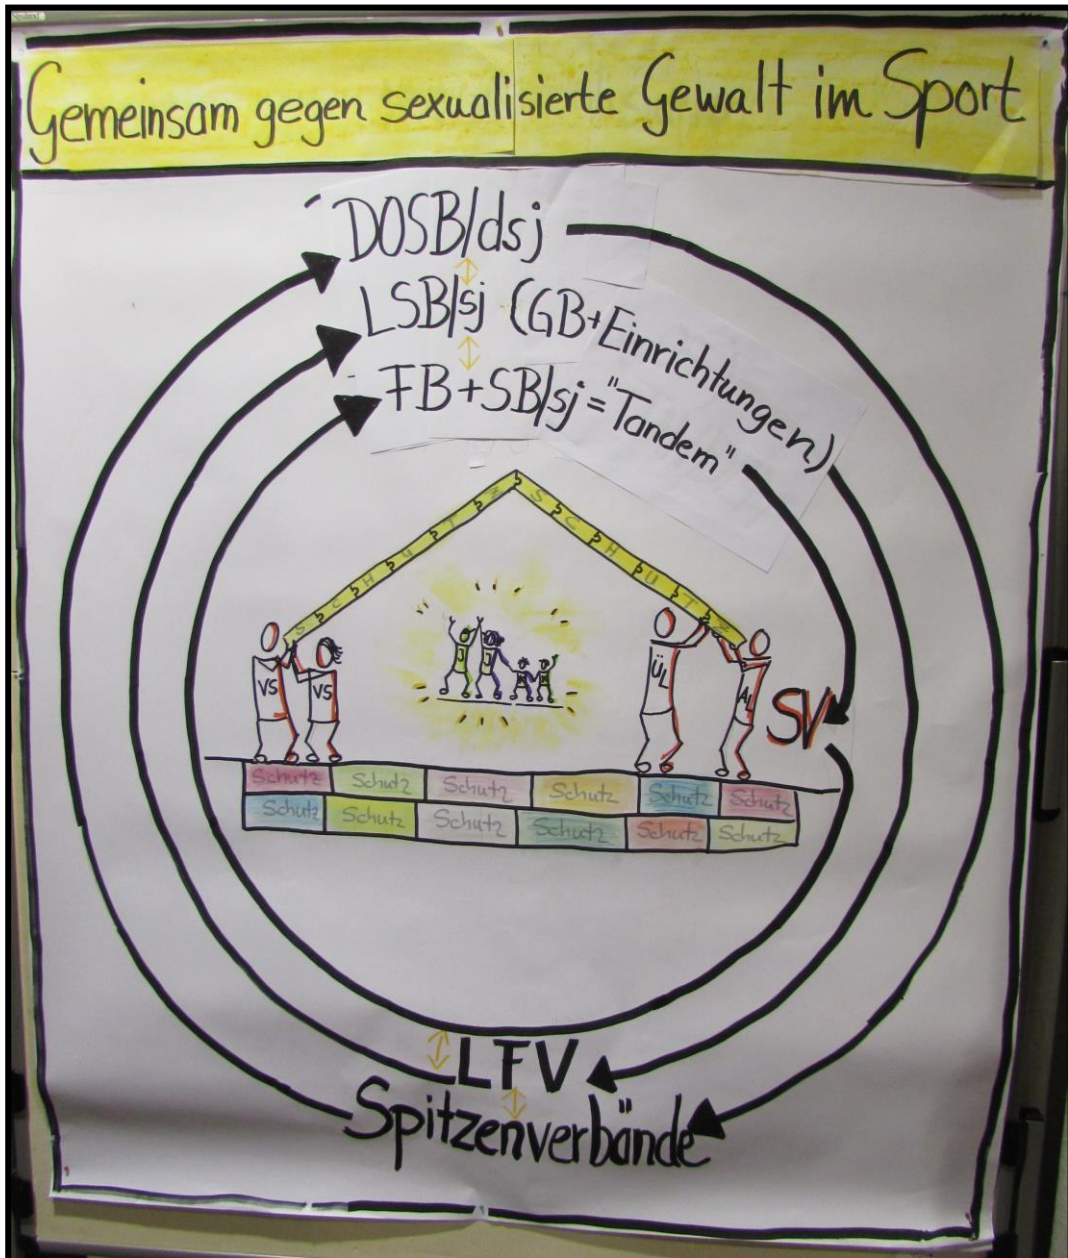 Gemeinsam gegen sexualisierte Gewalt im Sport
DOSB/dsj
LSB/sj (GB+Einrichtungen)
FB+SB/sj="Tandem"
SCHUTZ
SCHUTZ
VS
VS
ÜL
AL
SV
Schutz Schutz Schutz Schutz Schutz Schutz
Schutz Schutz Schutz Schutz Schutz Schutz
LFV
Spitzenverbände